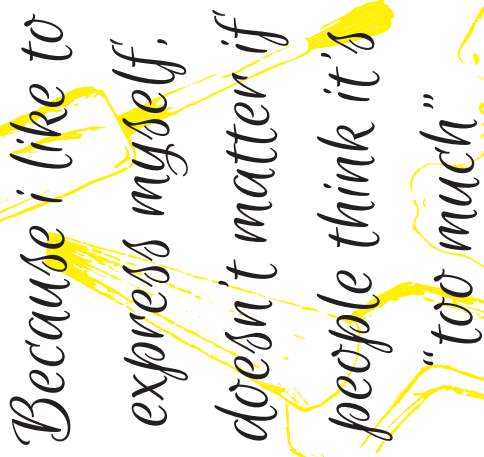 Because i like to
express myself,
doesn't matter if
people think it's
"too much"